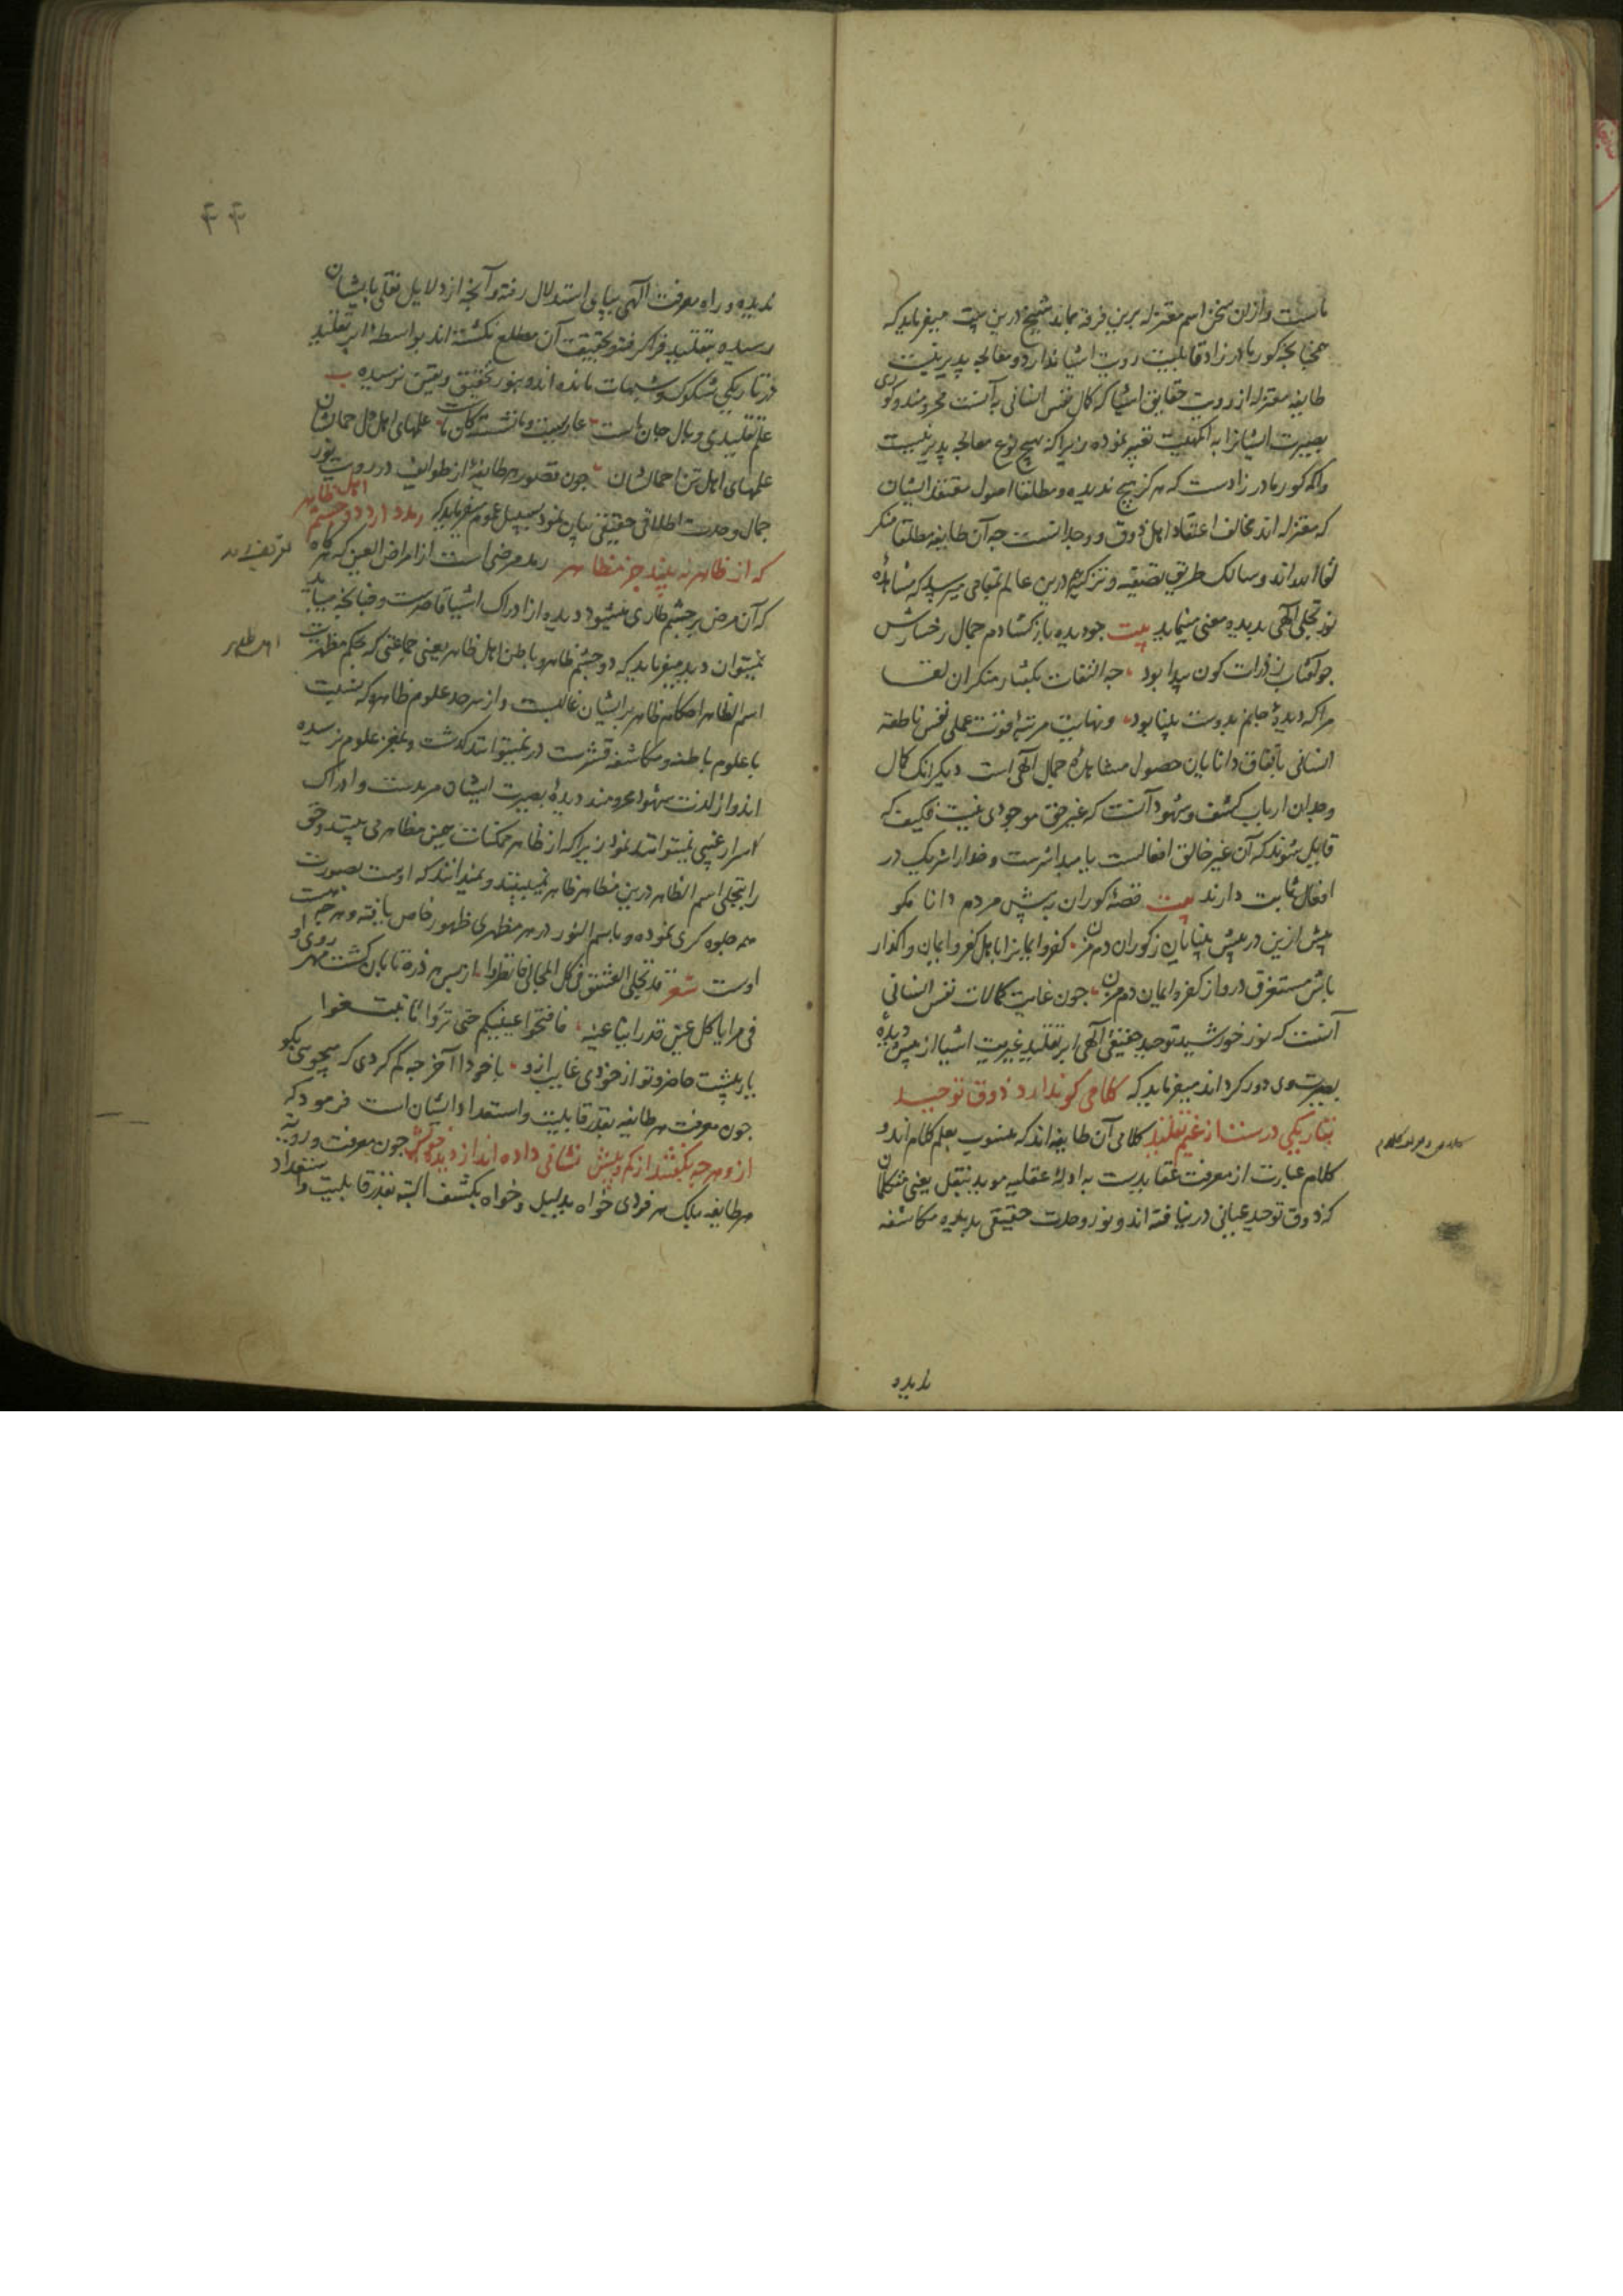 ماست و ازان سخن اسم معتزله برین فرقه بماند شیخ درین بیت میفرماید که
همچنانچه کور مادر زاد قابلیت رویت اشیا ندارد و معالجه پذیر نیست
طایفه معتزله از رویت حقایق اشیا که کمال نفس انسانی بآنست محرومند و کوری
بصیرت ایشانرا به اکمهیت تعبیر نموده زیرا که بهیچ نوع معالجه پذیر نیست
و اکمه کور مادر زادست که هرگز هیچ ندیده و مطلقا اصول معتقد ایشان
که معتزله اند مخالف اعتقاد اهل ذوق و وجدانست چه آن طایفه مطلقا منکر
لقاء الله اند و سالک طریق تصفیه و تزکیه هم درین عالم بمقامی میرسد که مشاهده
نور تجلی الهی بدیده معنی مینماید بیت چو دیده باز گشادم جمال رخسارش
چو آفتاب ز ذرات کون پیدا بود چه التفات بگفتار منکران لقا
مرا که دیده جانم بدوست بینا بود و نهایت مرتبه قوت عملی نفس ناطقه
انسانی باتفاق دانایان حصول مشاهده جمال الهی است دیگر آنک کمال
وجدان ارباب کشف و شهود آنست که غیر حق موجودی نیست فکیف که
قایل شوند که آن غیر خالق افعالست یا مبدا شرست و خدا را شریک در
افعال ثابت دارند بیت قصه کوران به پیش مردم دانا مگو
بیش ازین در پیش بینایان ز کوران دم مزن کفر و ایمانرا باهل کفر و ایمان واگذار
باش مستغرق درو از کفر و ایمان دم مزن چون غایت کمالات نفس انسانی
آنست که نور خورشید توحید حقیقی الهی ابر تقلید غیریت اشیا از پیش دیده
بصیرت وی دور گرداند میفرماید که کلامی کو ندارد ذوق توحید
بتاریکی درست از غیم تقلید کلامی آن طایفه اند که منسوب بعلم کلام اند و
کلام عبارت از معرفت عقایدست به ادله عقلیه موید بنقل یعنی متکلمان
که ذوق توحید عیانی در نیافته اند و نور وحدت حقیقی بدیده مکاشفه
ندیده
۴۴
ندیده و راه معرفت الهی بپای استدلال رفته و آنچه از دلایل نقلی بایشان
رسیده بتقلید فراگرفته و بحقیقت آن مطلع نگشته اند بواسطه ابر تقلید
در تاریکی شکوک و شبهات مانده اند و بنور تحقیق و یقین نرسیده ب
علم تقلیدی وبال جان ماست عاریست و ما نشسته کان ماست علمهای اهل دل حمالشان
علمهای اهل تن احمالشان چون قصور هر طایفه از طوایف در رویت نور
جمال وحدت اطلاقی حقیقی بیان نمود بسبیل عموم میفرماید که رمد دارد دو چشم اهل ظاهر
که از ظاهر نه بیند جز مظاهر رمد مرضی است از امراض العین که هرگاه
که آن مرض بر چشم طاری میشود دیده از ادراک اشیا قاصرست و چنانچه میباید
نمیتوان دید میفرماید که دو چشم ظاهر و باطن اهل ظاهر یعنی جماعتی که بحکم مظهریت
اسم الظاهر احکام ظاهر بر ایشان غالبست و از سرحد علوم ظاهره که نسبت
با علوم باطنه و مکاشفه قشرست در نمیتوانند گذشت و بمغز علوم نرسیده
اند و از لذت شهود محرومند دیده بصیرت ایشان مرمدست و ادراک
اسرار غیبی نمیتوانند نمود زیرا که از ظاهر ممکنات جز مظاهر نمی بینند و حق
را بتجلی اسم الظاهر درین مظاهر ظاهر نمیبینند و نمیدانند که اوست بصورت
همه جلوه گری نموده و باسم النور در هر مظهری ظهور خاص یافته و هر چه هست
اوست شعر قد تجلی العشق فی کل المجالی فانظروا از پس هر ذره تابان گشت مهر روی او
فی مرایا کل عین قدر اینا عینه فافتحوا عینیکم حتی تروا ما تبتغوا
یار پیشت حاضر و تو از خودی غایب ازو باخود آ آخر چه گم کردی که میجویی بگو
چون معرفت هر طایفه بقدر قابلیت و استعداد ایشان است فرمود که
ازو هر چه بگفتند از کم و بیش نشانی داده اند از دیده خویش چون معرفت و رویه
هر طایفه بلک هر فردی خواه بدلیل و خواه بکشف البته بقدر قابلیت و استعداد
اهل ظاهر